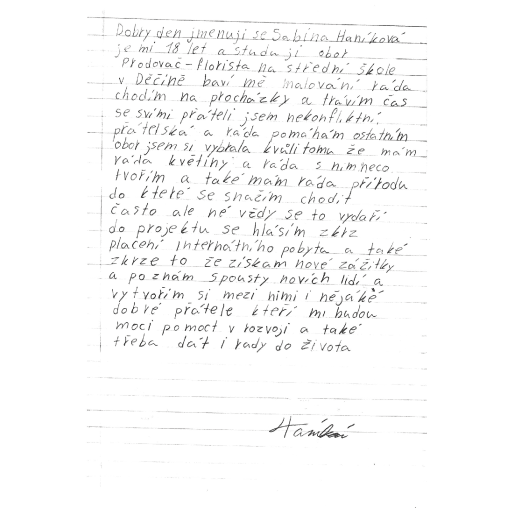 Dobrý den jmenuji se Sabina Haníková
je mi 18 let a studuji obor
Prodovač-florista na střední škole
v Děčíně baví mě malování ráda
chodím na procházky a trávím čas
se svími přáteli jsem nekonfliktní
přátelská a ráda pomáhám ostatním
obor jsem si vybrala kvůli tomu že mám
ráda květiny a ráda s nim neco
tvořím a také mám ráda přírodu
do které se snažím chodit
často ale né vždy se to vydaří
do projektu se hlásím zkrz
placení Internátního pobyta a také
zkrze to že získam nové zážitky
a poznám spousty novích lidí a
vytvořím si mezi nimi i nějáké
dobré přátele kteří mi budou
moci pomoct v rozvoji a také
třeba dát i rady do života